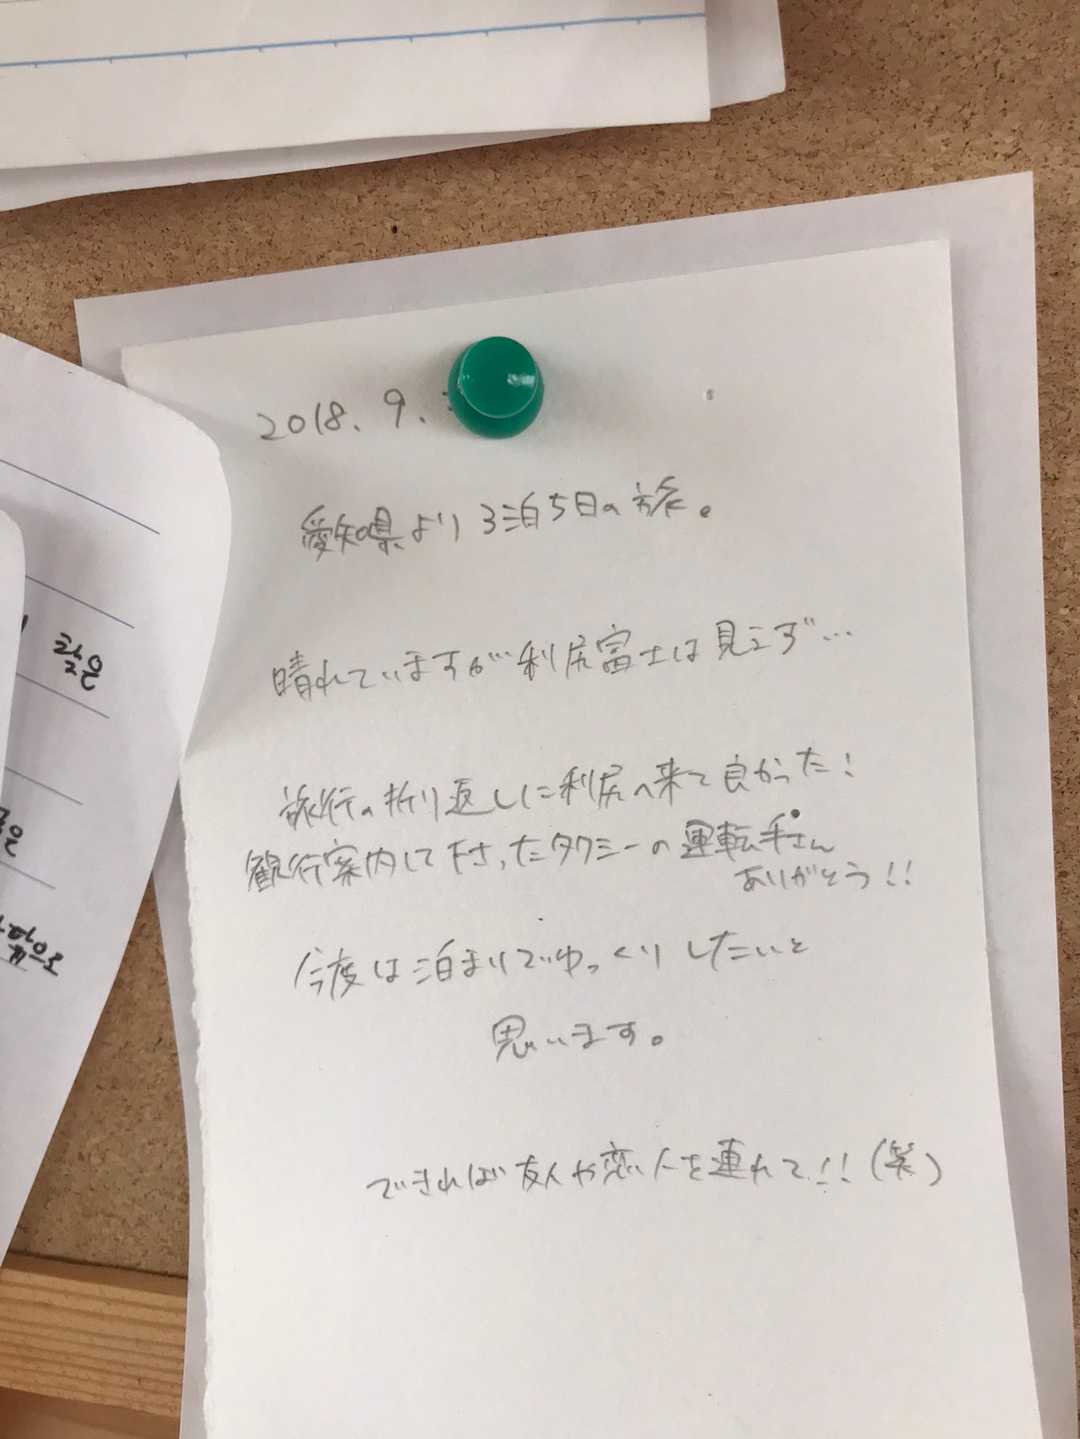 2018. 9.
愛知県より3泊5日の旅。
晴れていますが…利尻富士は見えず…
旅行の折り返しに利尻へ来て良かった!
観行案内して下さったタクシーの運転手さん
ありがとう!!
今度は泊まりでゆっくりしたいと
思います。
できれば友人や恋人を連れて!!(笑)
찾은
으로